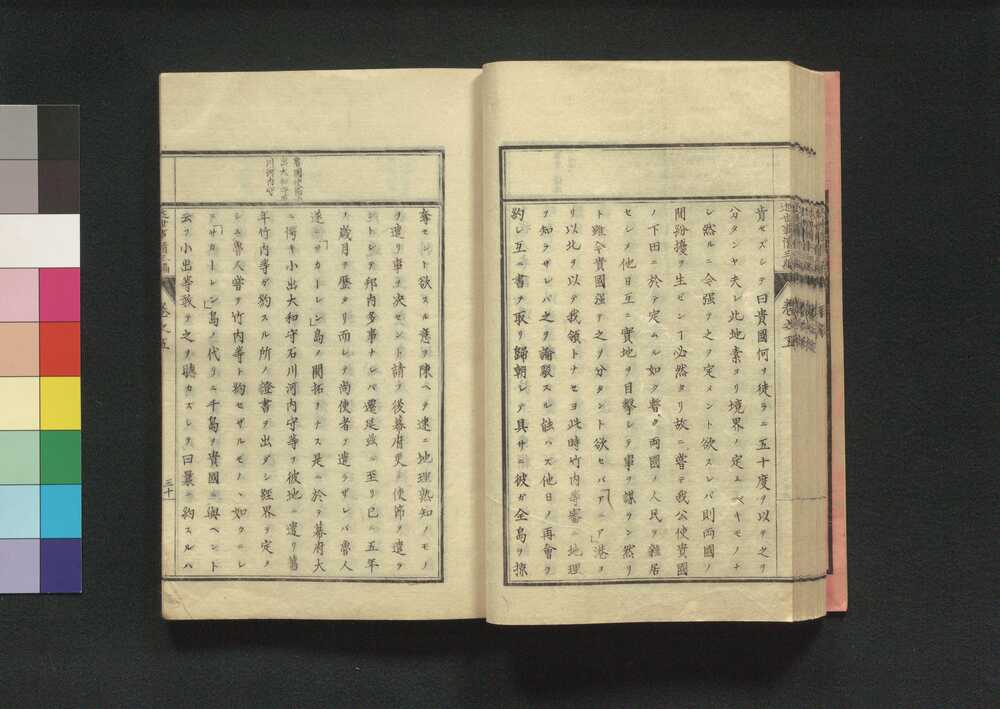 肯セズシテ曰貴國何ヲ徒ラニ五十度ヲ以テ之リ
分タンヤ夫レ此地素ヨリ境界ノ定ムベキモノナ
シ然ルニ今强テ之ヲ定メント欲スレバ則両國ノ
間紛擾ヲ生ゼンヿ必然タリ故ニ嘗テ我公使貴國
ノ下田ニ於テ定ムル如ク暫ク両國ノ人民ヲ雜居
セシメ他日互ニ實地ヲ目擊シテ事ヲ謀ラン然リ
ト雖今貴國强テ之ヲ分タント欲セバ「アニア」港ヲ
以北ヲ以テ我領トナセヨ此時竹内等審ニ地理
ヲ知ラザレバ之ヲ論駁スル能ハズ他日ノ再會ヲ
約シ互ニ書ヲ取リ歸朝シテ具サニ彼ガ全島ヲ掠
奪セント欲スル意ヲ陳ベテ速ニ地理熟知ノモノ
ヲ遣リ事ヲ決セント請フ後幕府更ニ使節ヲ遣ラ
ントシテ邦内多事ナレバ遷延茲ニ至リ已ニ五年
ノ歳月ヲ歷タリ而シテ尚使者ヲ遣ラザレバ魯人
遂ニ「サカーレン」島ノ開拓ヲナス是ニ於テ幕府大
ニ愕キ小出大和守石川河内守等ヲ彼地ニ遣リ舊
年竹内等ガ約スル所ノ證書ヲ出ダシ經界ヲ定メ
シニ魯人嘗ヲ竹内等ト約セザルモノヽ如クニシ
テ「サカーレン」島ノ代リニ千島ヲ貴國ニ與ヘント
云フ小出等敢テ之ヲ聴カズシテ曰曩ニ約スルハ
卷之五
三十